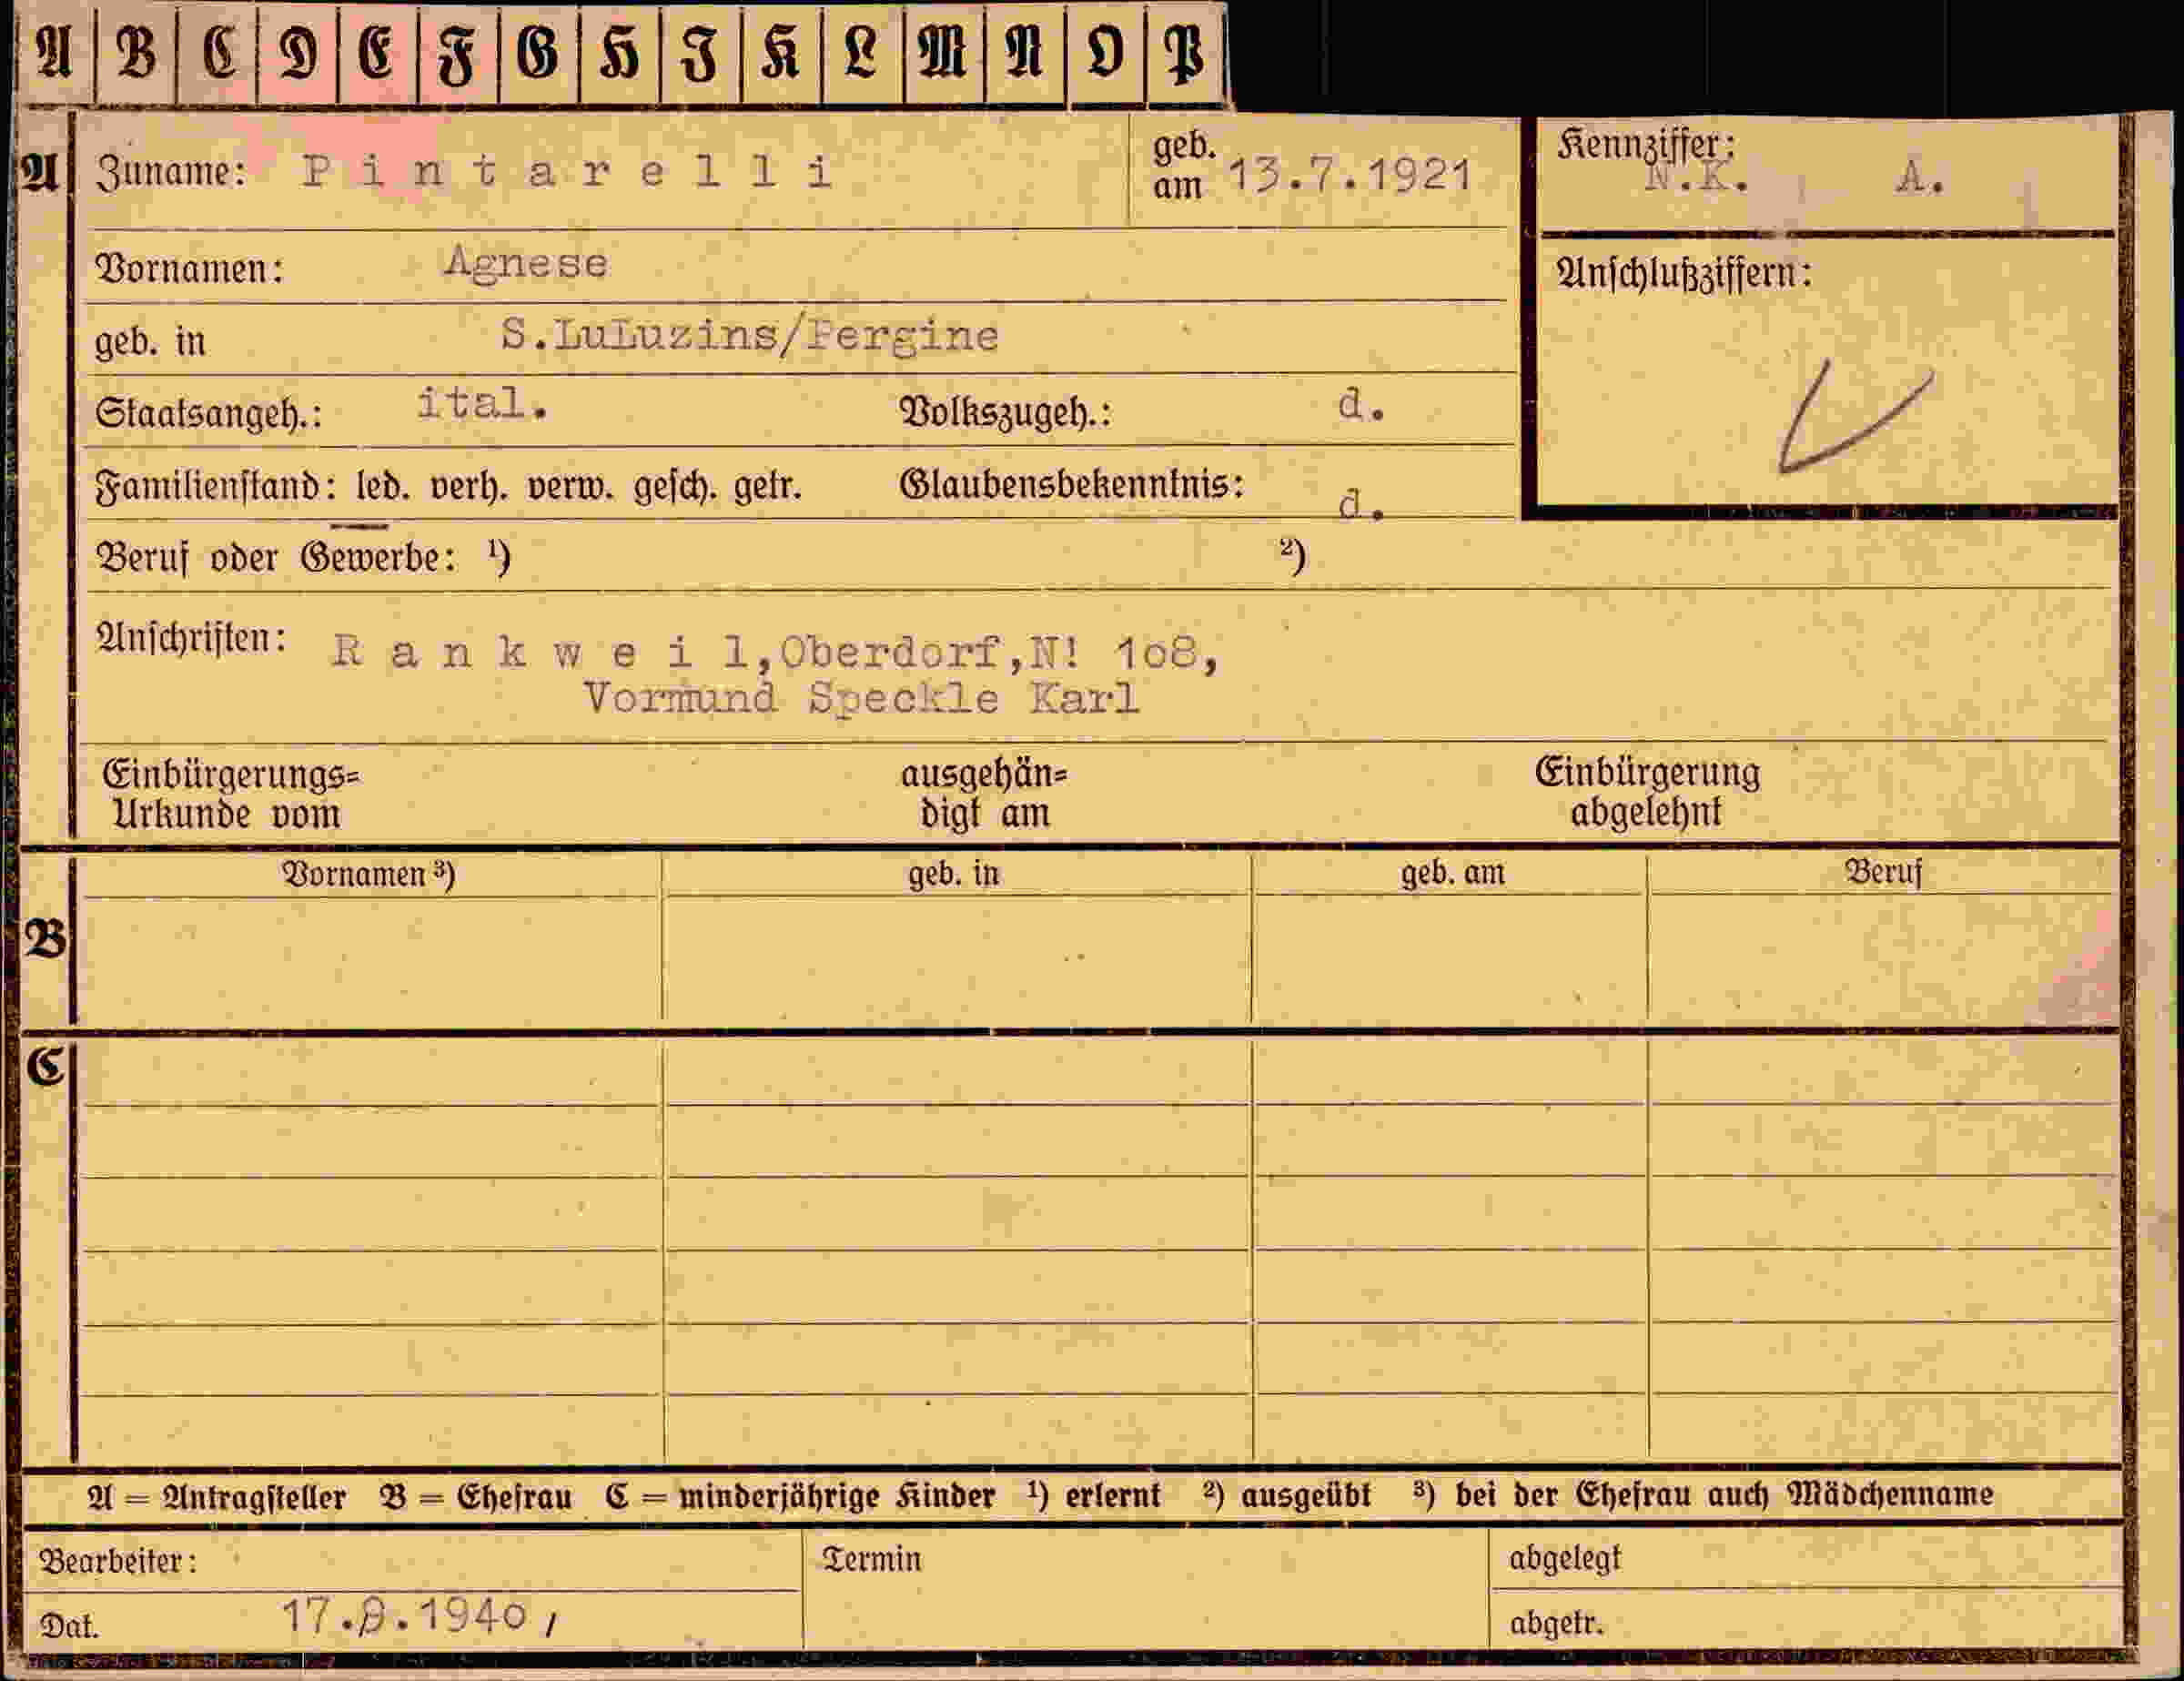 A B C D E F G H I K L M N O P
A Zuname: Pintarelli geb. am 13.7.1921 Kennziffer: N.K. A.
Vornamen: Agnese Anschlußziffern:
geb. in S.LuLuzins/Pergine
Staatsangeh.: ital. Volkszugeh.: d.
Familienstand: led. verh. verw. gesch. getr. Glaubensbekenntnis: d.
Beruf oder Gewerbe: ¹) ²)
Anschriften: Rankweil,Oberdorf,N! 1o8,
Vormund Speckle Karl
Einbürgerungs= ausgehän= Einbürgerung
Urkunde vom digt am abgelehnt
Vornamen ³) geb. in geb. am Beruf
B
C
A = Antragsteller B = Ehefrau C = minderjährige Kinder ¹) erlernt ²) ausgeübt ³) bei der Ehefrau auch Mädchenname
Bearbeiter: Termin abgelegt
Dat. 17. .194o, abgetr.